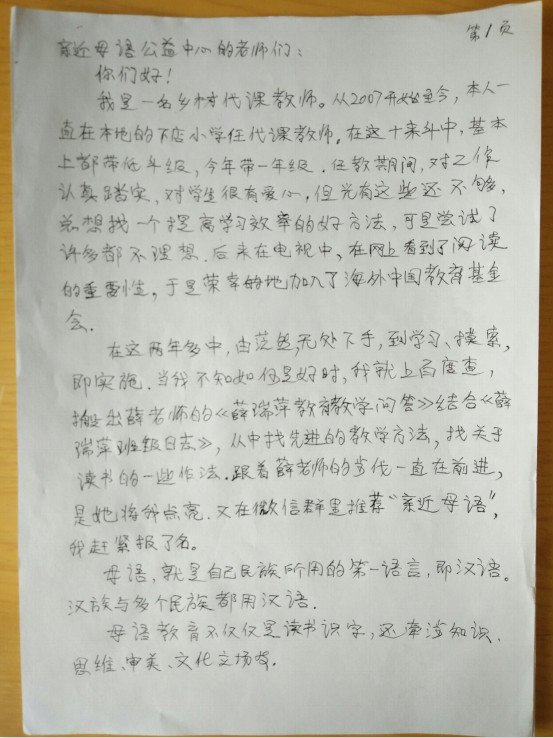 第1页
亲近母语公益中心的老师们：
你们好！
我是一名乡村代课教师。从2007开始至今，本人一
直在本地的下店小学任代课教师。在这十来年中，基本
上都带低年级，今年带一年级．任教期间，对工作
认真踏实，对学生很有爱心，但光有这些还不够，
总想找一个提高学习效率的好方法，可是尝试了
许多都不理想．后来在电视中，在网上看到了阅读
的重要性，于是荣幸的地加入了海外中国教育基金
会．
在这两年多中，由茫然，无处下手，到学习、摸索，
即实施．当我不知如何是好时，我就上百度查，
搬出薛老师的《薛瑞萍教育教学问答》结合《薛
瑞萍班级日志》，从中找先进的教学方法，找关于
读书的一些作法．跟着薛老师的步伐一直在前进，
是她将我点亮．又在微信群里推荐“亲近母语”，
我赶紧报了名。
母语，就是自己民族所用的第一语言，即汉语。
汉族与多个民族都用汉语．
母语教育不仅仅是读书识字，还牵涉知识、
思维、审美、文化立场等．